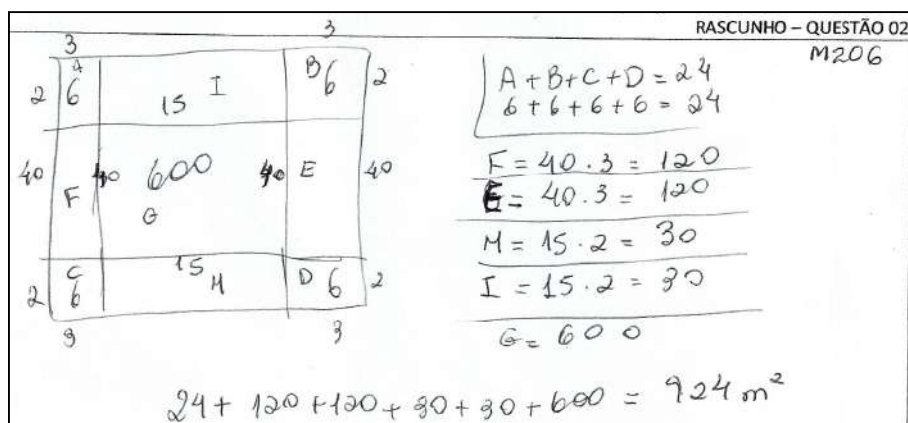 RASCUNHO – QUESTÃO 02
M206
3 3
2 A 6 15 I B 6 2
40 F 40 600 40 E 40
G
2 C 6 15 H D 6 2
3 3
A+B+C+D=24
6+6+6+6=24
F=40.3=120
E=40.3=120
H=15.2=30
I=15.2=30
G=600
24+120+120+30+30+600=924 m²